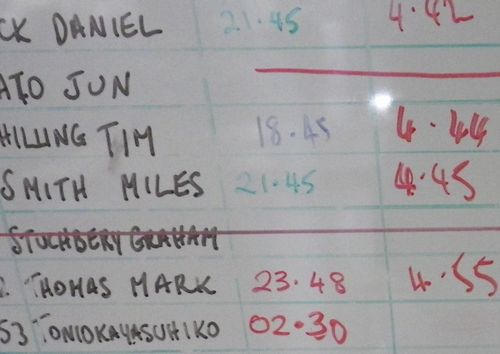 CK DANIEL 21.45 4.42
ATO JUN
HILLING TIM 18.45 4.44
SMITH MILES 21.45 4.45
STUCHBERY GRAHAM
2. THOMAS MARK 23.48 4.55
53 TONIOKAYASUHIKO 02.30